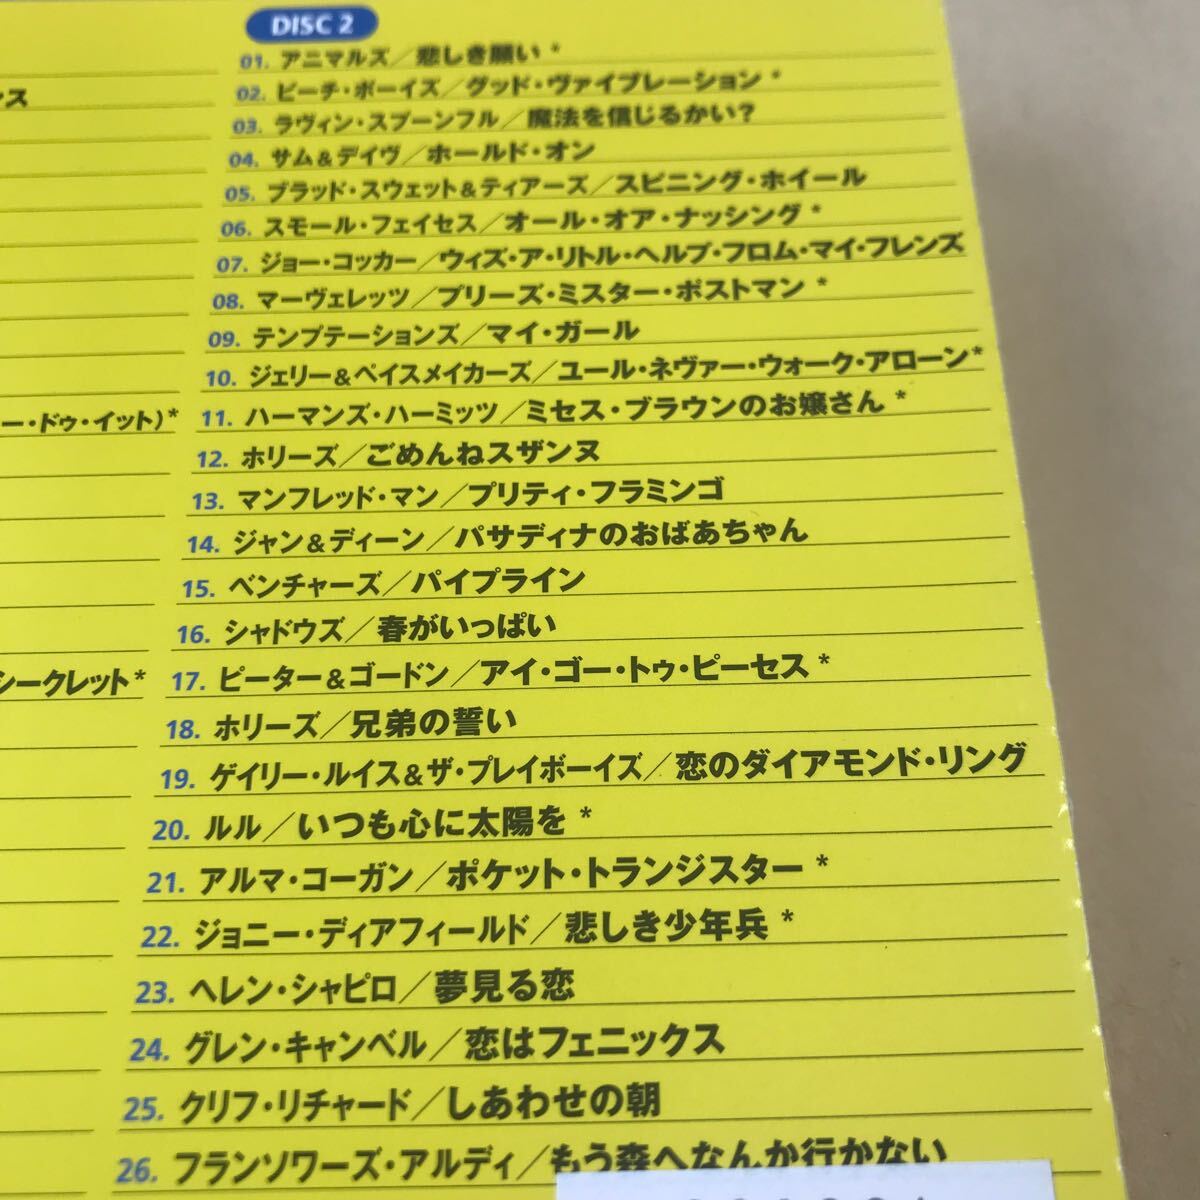 ンス
ー・ドゥ・イット)*
シークレット*
DISC 2
01. アニマルズ／悲しき願い *
02. ビーチ・ボーイズ／グッド・ヴァイブレーション *
03. ラヴィン・スプーンフル／魔法を信じるかい?
04. サム&デイヴ／ホールド・オン
05. ブラッド・スウェット&ティアーズ／スピニング・ホイール
06. スモール・フェイセス／オール・オア・ナッシング *
07. ジョー・コッカー／ウィズ・ア・リトル・ヘルプ・フロム・マイ・フレンズ
08. マーヴェレッツ／プリーズ・ミスター・ポストマン *
09. テンプテーションズ／マイ・ガール
10. ジェリー&ペイスメイカーズ／ユール・ネヴァー・ウォーク・アローン*
11. ハーマンズ・ハーミッツ／ミセス・ブラウンのお嬢さん *
12. ホリーズ／ごめんねスザンヌ
13. マンフレッド・マン／プリティ・フラミンゴ
14. ジャン&ディーン／パサディナのおばあちゃん
15. ベンチャーズ／パイプライン
16. シャドウズ／春がいっぱい
17. ピーター&ゴードン／アイ・ゴー・トゥ・ピーセス *
18. ホリーズ／兄弟の誓い
19. ゲイリー・ルイス&ザ・プレイボーイズ／恋のダイアモンド・リング
20. ルル／いつも心に太陽を *
21. アルマ・コーガン／ポケット・トランジスター *
22. ジョニー・ディアフィールド／悲しき少年兵 *
23. ヘレン・シャピロ／夢見る恋
24. グレン・キャンベル／恋はフェニックス
25. クリフ・リチャード／しあわせの朝
26. フランソワーズ・アルディ／もう森へなんか行かない